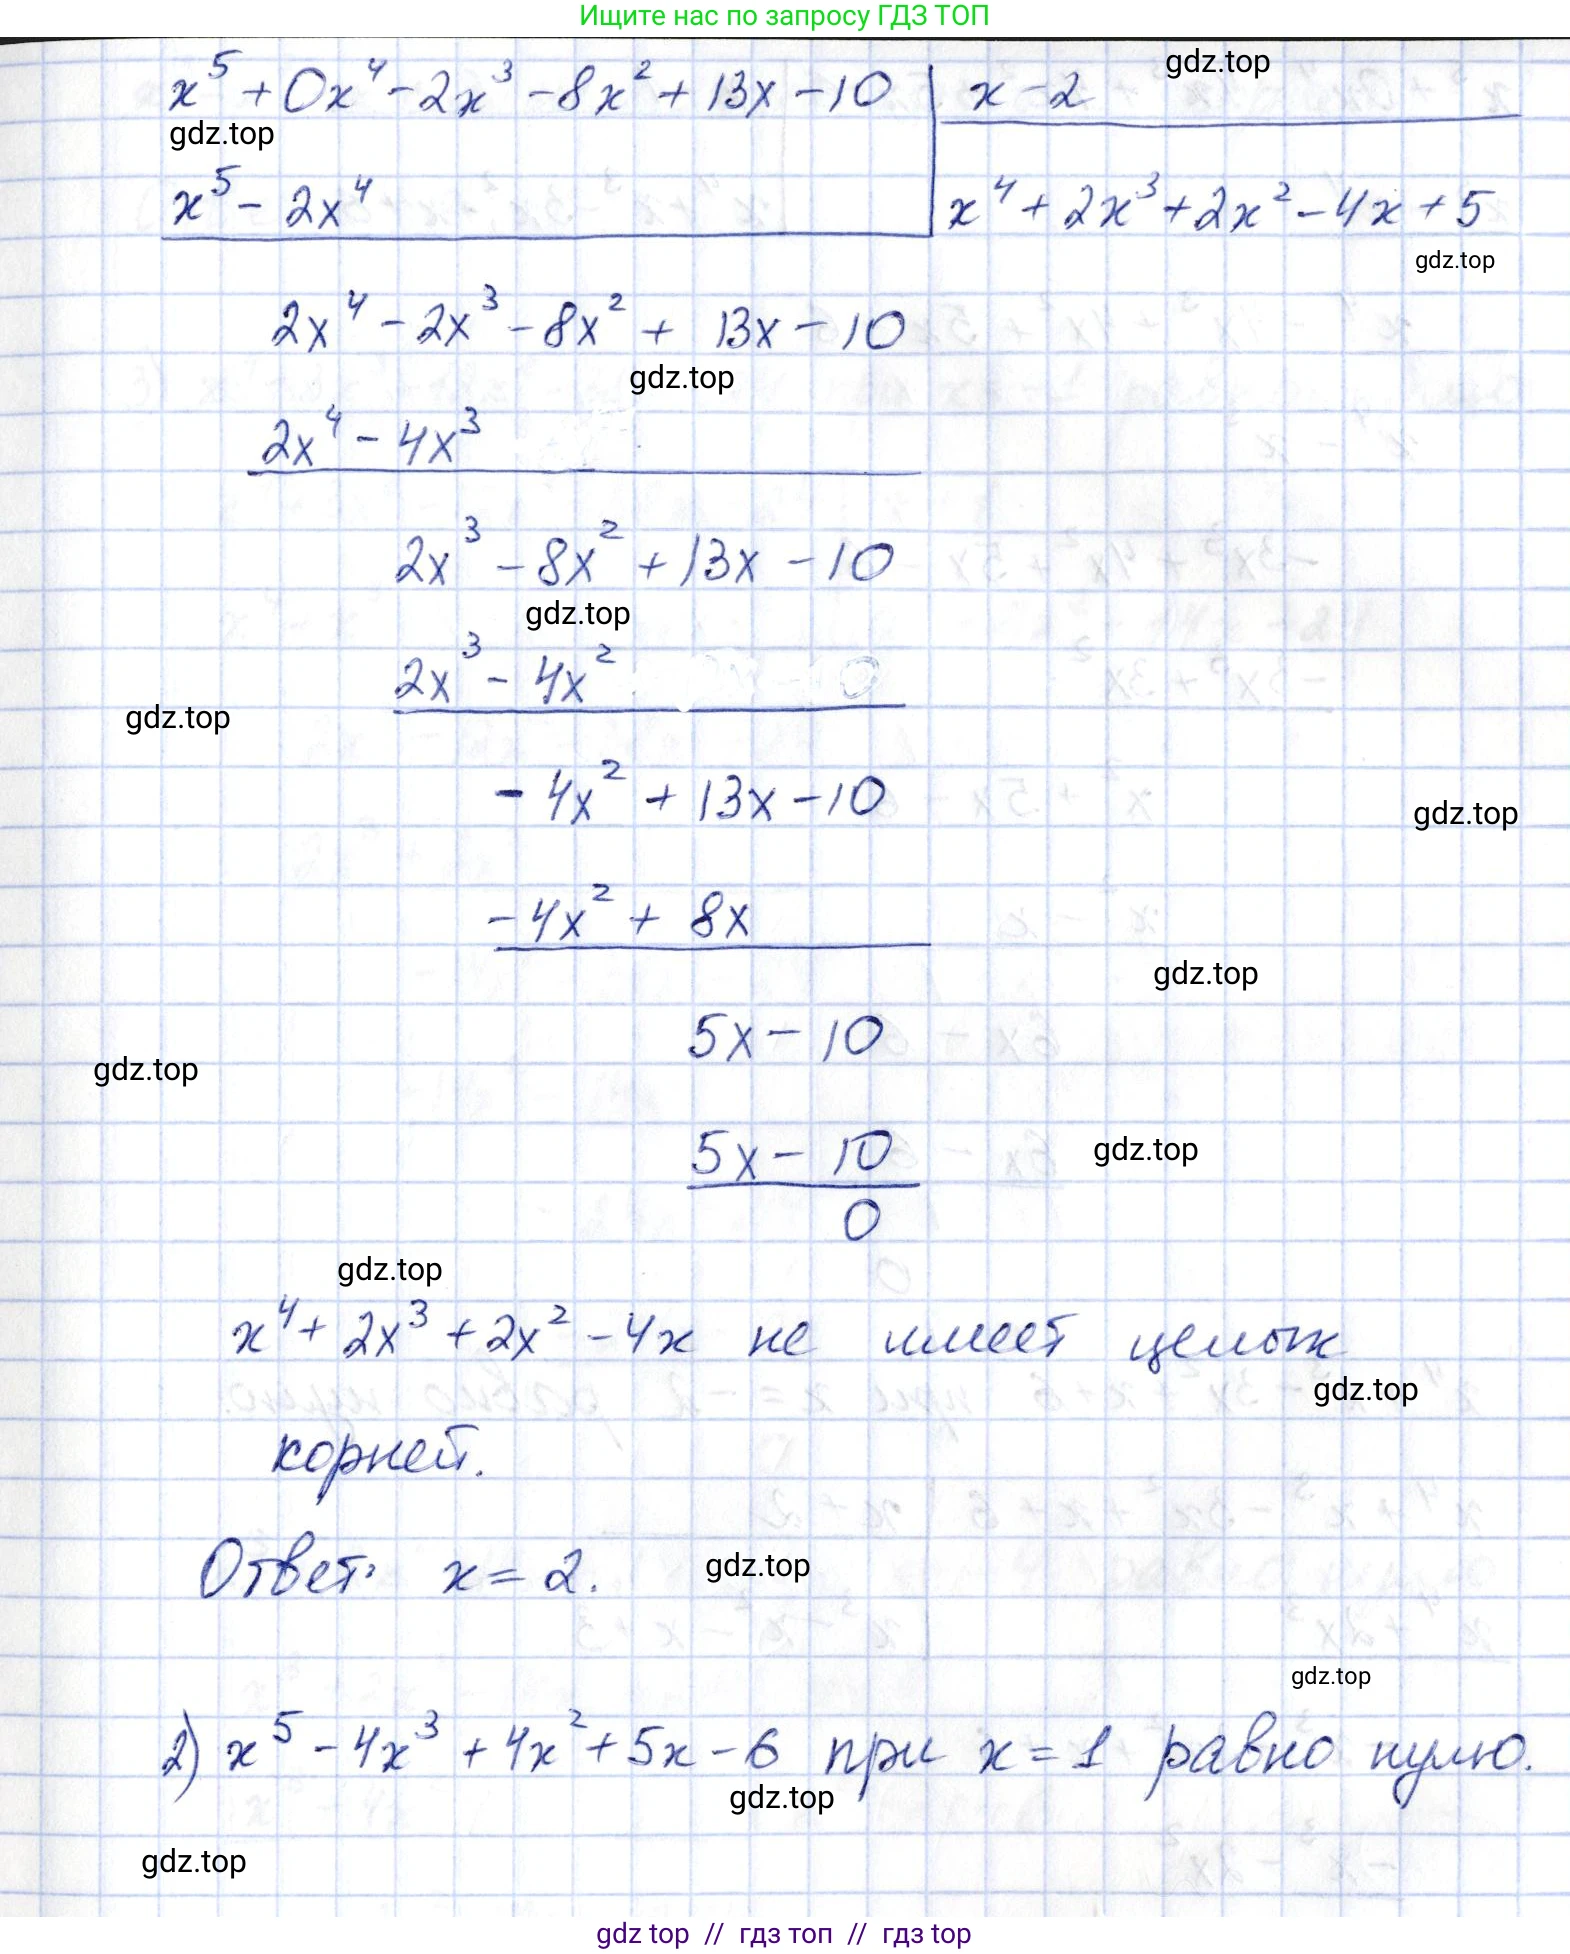 Ищите нас по запросу ГДЗ ТОП
x⁵ + 0x⁴ - 2x³ - 8x² + 13x - 10 | x - 2
gdz.top
gdz.top
x⁵ - 2x⁴ | x⁴ + 2x³ + 2x² - 4x + 5
gdz.top
2x⁴ - 2x³ - 8x² + 13x - 10
gdz.top
2x⁴ - 4x³
2x³ - 8x² + 13x - 10
gdz.top
2x³ - 4x²
gdz.top
- 4x² + 13x - 10
gdz.top
- 4x² + 8x
gdz.top
5x - 10
gdz.top
5x - 10
gdz.top
0
gdz.top
x⁴ + 2x³ + 2x² - 4x не имеет целых
gdz.top
корней.
Ответ: x = 2.
gdz.top
gdz.top
2) x⁵ - 4x³ + 4x² + 5x - 6 при x = 1 равно нулю.
gdz.top
gdz.top
gdz top // гдз топ // гдз top